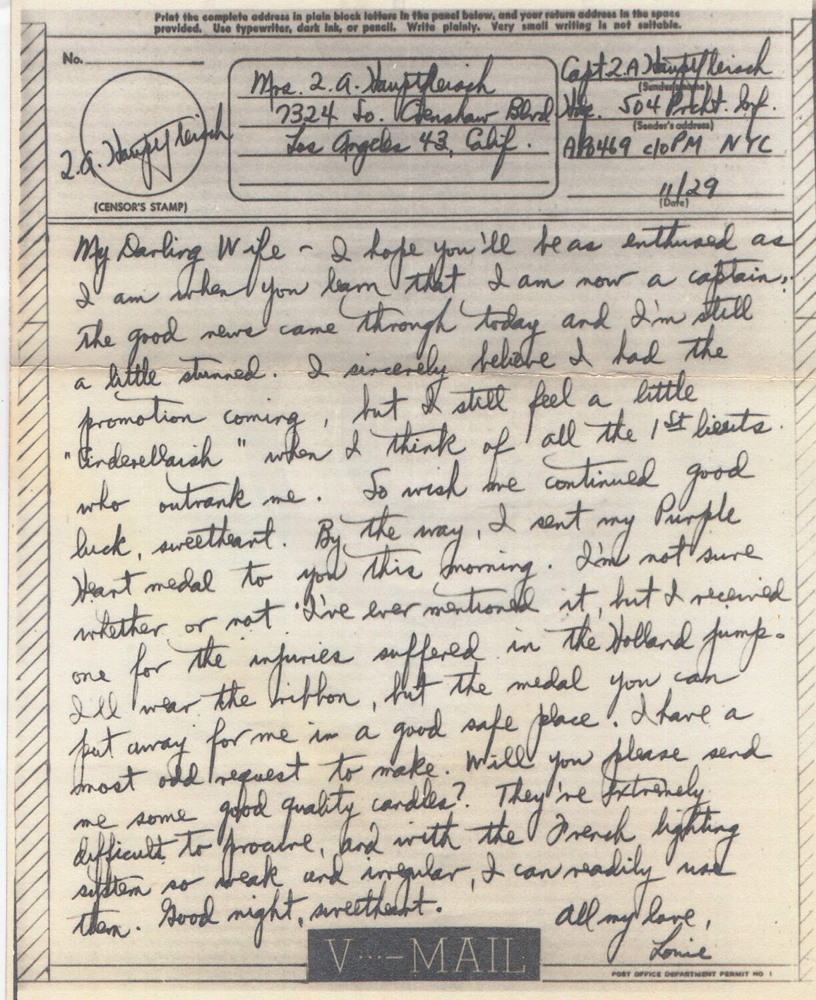 Print the complete address in plain block letters in the panel below, and your return address in the space
provided. Use typewriter, dark ink, or pencil. Write plainly. Very small writing is not suitable.
No.
L.A. Hauptfleisch
(CENSOR'S STAMP)
Mrs. L. A. Hauptfleisch
7324 So. Crenshaw Blvd
Los Angeles 43, Calif.
Capt L.A Hauptfleisch
(Sender's name)
Hq. 504 Prcht. Inf.
(Sender's address)
APO469 c/o PM NYC
11/29
(Date)
My Darling Wife - I hope you'll be as enthused as
I am when you learn that I am now a captain;
the good news came through today and I'm still
a little stunned. I sincerely believe I had the
promotion coming, but I still feel a little
"Cinderellaish" when I think of all the 1st lieuts.
who outrank me. So wish me continued good
luck, sweetheart. By the way, I sent my Purple
Heart medal to you this morning. I'm not sure
whether or not I've ever mentioned it, but I received
one for the injuries suffered in the Holland jump.
I'll wear the ribbon, but the medal you can
put away for me in a good safe place. I have a
most odd request to make. Will you please send
me some good quality candles? They're extremely
difficult to procure, and with the French lighting
system so weak and irregular, I can readily use
them. Good night, sweetheart.
All my love,
Louie
V···–MAIL
POST OFFICE DEPARTMENT PERMIT NO 1